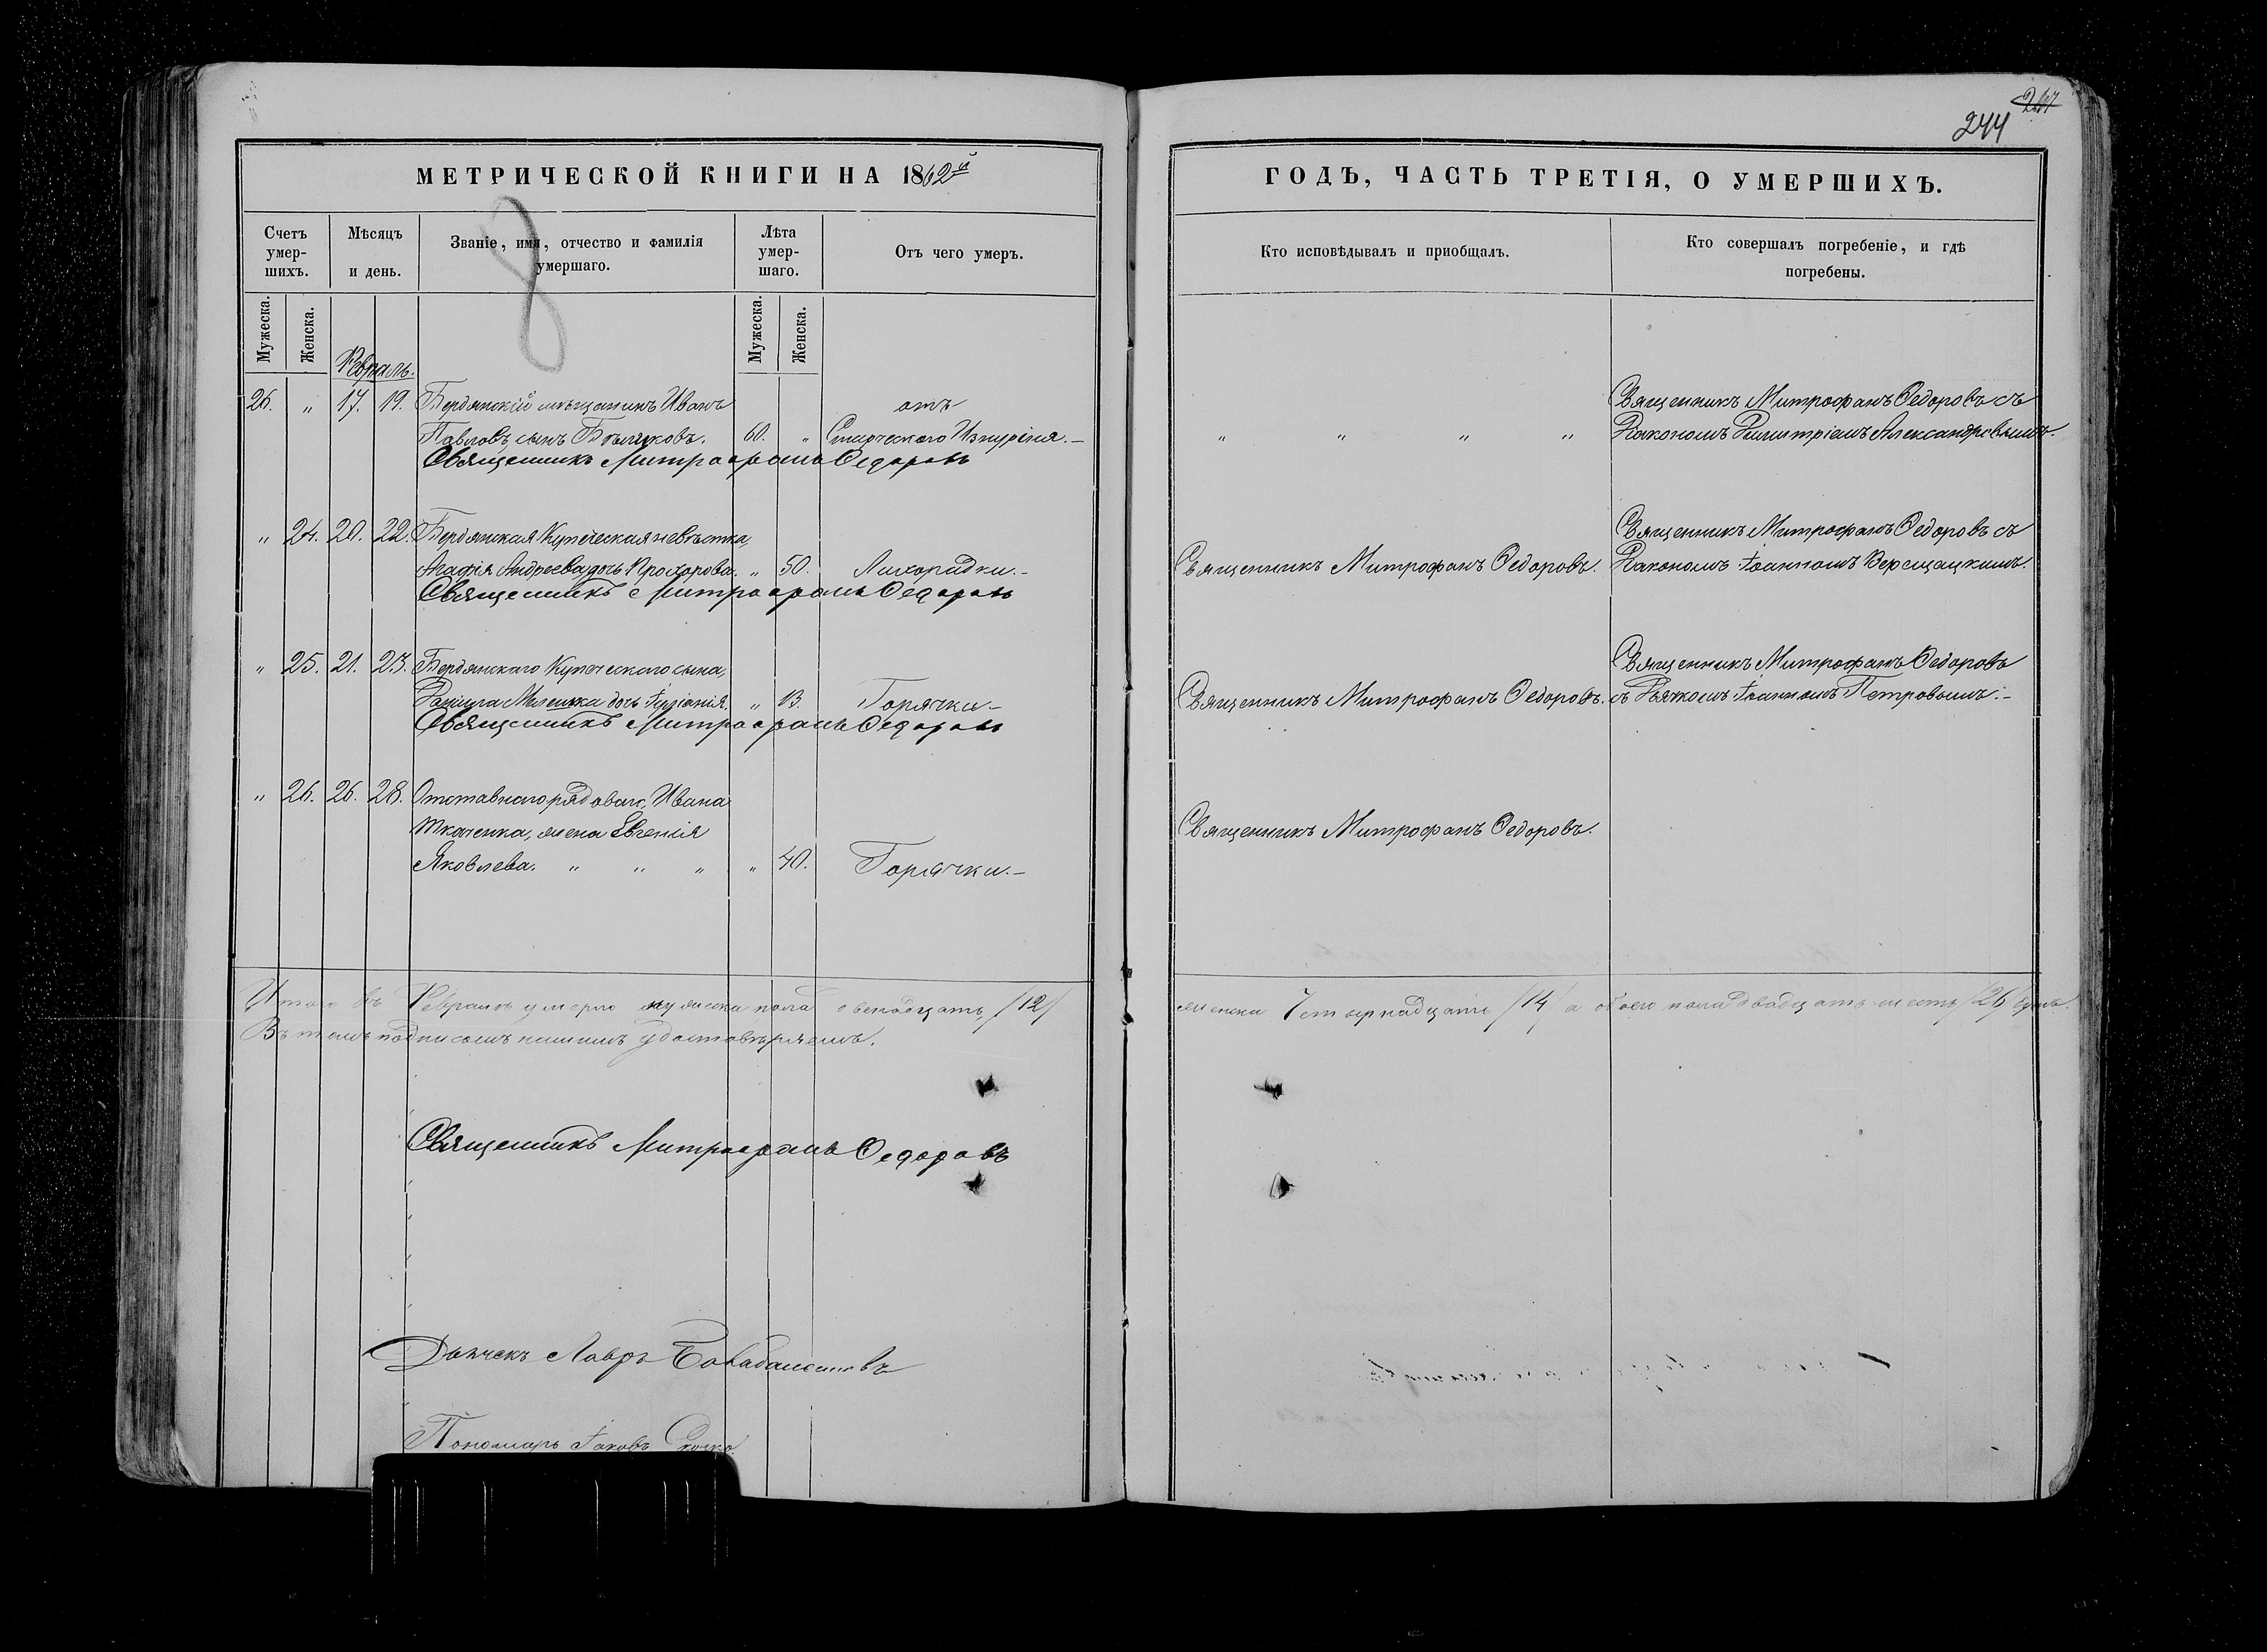 244
МЕТРИЧЕСКОЙ КНИГИ НА 1862й
ГОДЪ, ЧАСТЬ ТРЕТІЯ, О УМЕРШИХЪ.
Счетъ умер-шихъ.
Мѣсяцъ и день.
Званіе, имя, отчество и фамилія умершаго.
Лѣта умер-шаго.
Отъ чего умеръ.
Кто исповѣдывалъ и пріобщалъ.
Кто совершалъ погребеніе, и гдѣ погребены.
Мужеска.
Женска.
Мужеска.
Женска.
Февраль.
26. " 17. 19. Бердянскій мѣщанинъ Иванъ
отъ
Павловъ сынъ Бѣляковъ. 60. " Старческаго Изнуренія.
" " " "
Священникъ Митрофанъ Федоровъ съ
Диакономъ Димитріемъ Александровымъ.
Священникъ Митрофанъ Федоровъ
" 24. 20. 22. Бердянская Купеческая невѣстка,
Агафія Андреева дочь Прохорова. " 50. Лихорадки.
Священникъ Митрофанъ Федоровъ.
Священникъ Митрофанъ Федоровъ съ
Диакономъ Іоанномъ Верещацкимъ.
Священникъ Митрофанъ Федоровъ
" 25. 21. 23. Бердянскаго Купеческаго сына,
Даніила дочь " 13. Горячки.
Священникъ Митрофанъ Федоровъ.
Священникъ Митрофанъ Федоровъ
съ Дьячкомъ Іоанномъ Петровымъ.
Священникъ Митрофанъ Федоровъ
" 26. 26. 28. Отставнаго рядоваго, Ивана
Ткаченка, жена Евгенія
Яковлева. " " " " 40. Горячки.
Священникъ Митрофанъ Федоровъ.
Итого въ Февралѣ умерло мужеска пола двенадцать /12/ женска Четырнадцать /14/ а обоего пола двадцать шесть /26/ душъ.
Въ томъ подписомъ нашимъ удостовѣряемъ.
Священникъ Митрофанъ Федоровъ
Дьячекъ Лавръ
Пономарь Іаковъ